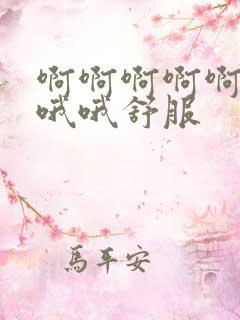 啊啊啊啊啊
哦哦舒服
馬平安